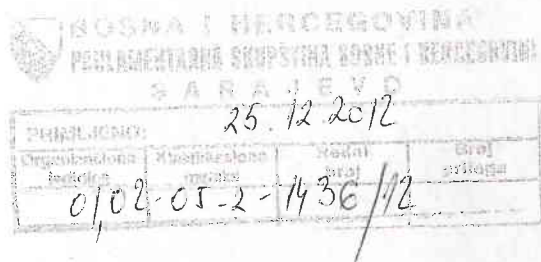 BOSNA I HERCEGOVINA
PARLAMENTARNA SKUPŠTINA BOSNE I HERCEGOVINE
SARAJEVO
PRIMLJENO: 25.12.2012
Organizaciona jedinica Klasifikaciona oznaka Redni broj Broj priloga
01,02-05-2-1436/12